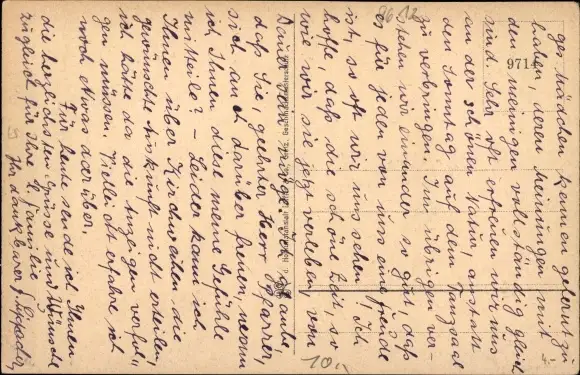 ges Mädchen kennen gelernt zu
haben, deren Meinungen mit
den meinigen vollständig gleich
sind. Sehr oft erfreuen wir uns
an der schönen Natur, anstatt
den Sonntag auf dem Tanzsaal
zu verbringen. Im übrigen ver-
stehen wir einander so gut, daß
es für jeden von uns eine Freude
ist, so oft wir uns sehen. Ich
hoffe, daß die schöne Zeit, so
wie wir sie jetzt verleben, von
Dauer sein möge. Ich glaube
daß Sie, geehrter Herr Pfarrer,
sich auch darüber freuen, wenn
ich Ihnen diese meine Gefühle
mitteile? - Leider kann ich
Ihnen über Kirchwaten die
gewünschte Auskunft nicht erteilen,
ich hätte da die Anzeigen verfol-
gen müssen. Vielleicht erfahre ich
noch etwas darüber.
Für heute sende ich Ihnen
die herzlichsten Grüsse und Wünsche
zugleich für Ihre l. Familie
Ihr dankbarer
9714
10.-